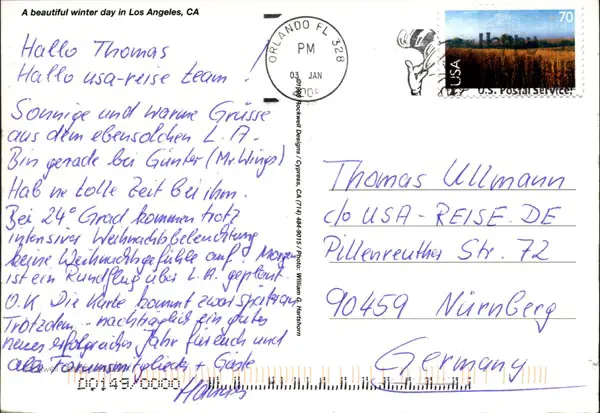 A beautiful winter day in Los Angeles, CA
Hallo Thomas
Hallo usa-reise team!
Sonnige und warme Grüsse
aus dem ebensolchen L.A.
Bin gerade bei Günter (Mr Wings)
Hab ne tolle Zeit bei ihm.
Bei 24° Grad kommen trotz
intensiver Weihnachtsbeleuchtung
keine Weihnachtsgefühle auf. Morgen
ist ein Rundflug über L.A. geplant.
O.K Die Karte kommt zwar später an
Trotzdem - nachträglich ein gutes
neues erfolgreiches Jahr für euch und
alle Forumsmitglieder + Gäste
00149/0000
ORLANDO FL 328
PM
03 JAN
70
USA
U.S. Postal Service
Rockwell Designs / Cypress, CA (714) 484-9015 / Photo: William G. Hartshorn
Thomas Ullmann
c/o USA-REISE.DE
Pillenreuther Str. 72
90459 Nürnberg
Germany